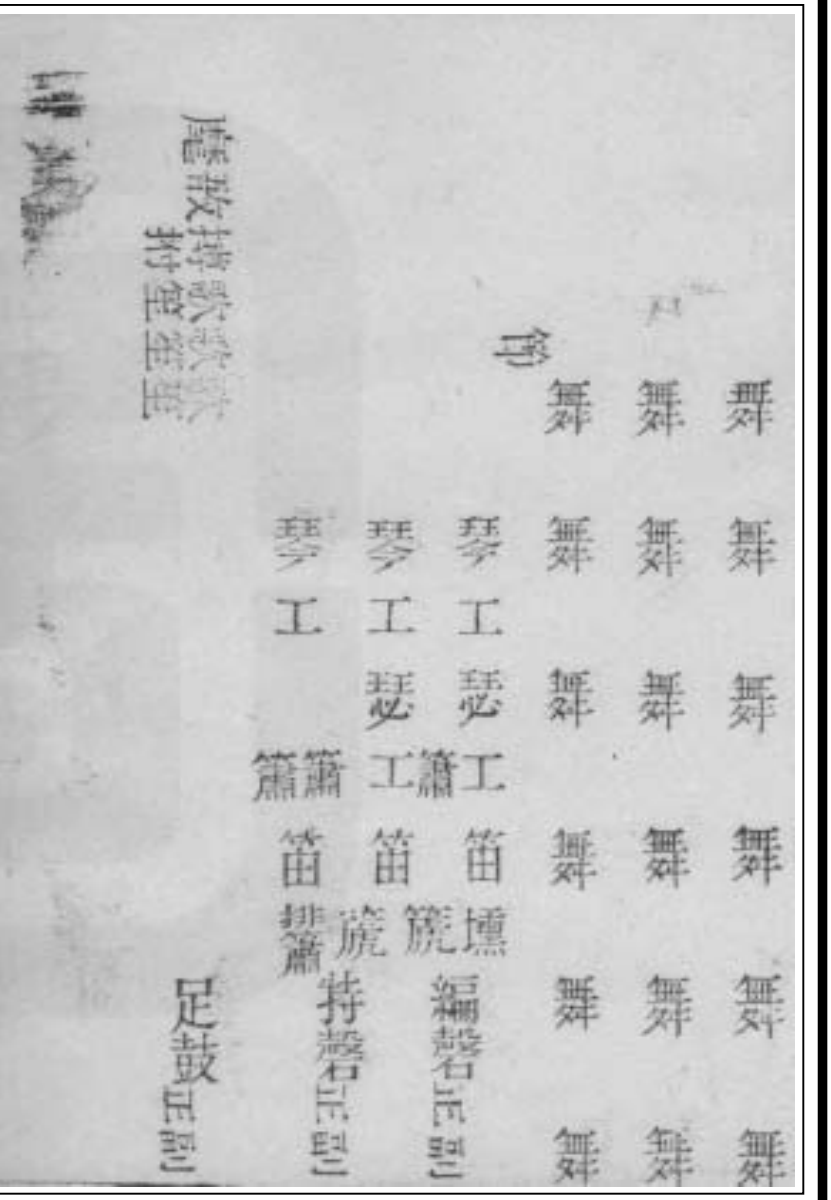 舞舞舞舞舞舞
舞舞舞舞舞舞
舞舞舞舞舞舞
節
琴工瑟工笛壎
簫篪
編磬正副
琴工瑟工笛
篪
特磬正副
琴工簫笛排簫
簫
麾敔搏歌歌歌
拊笙笙笙
足鼓正副